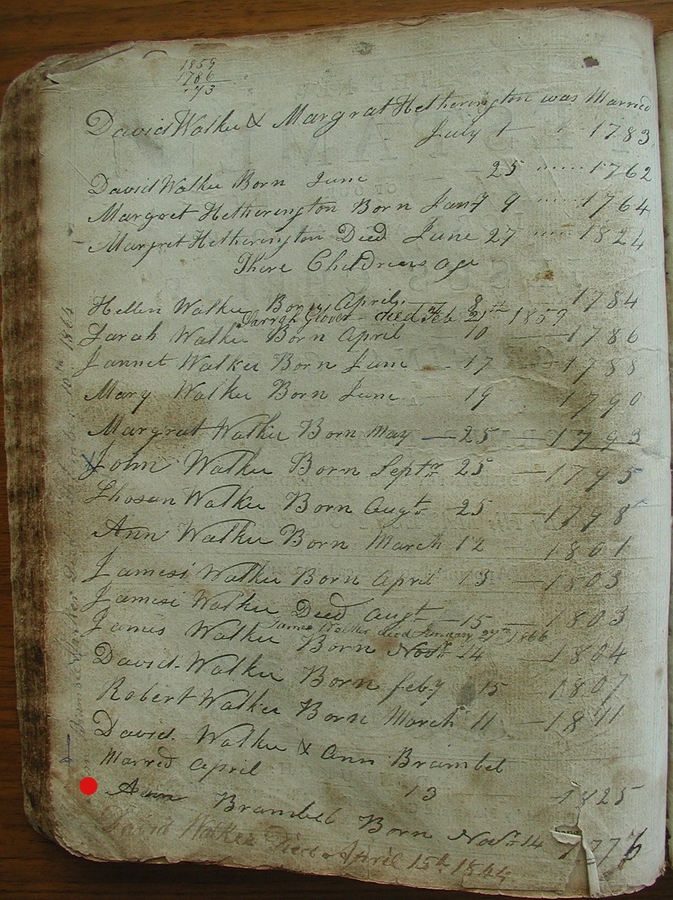 1859
1786
73
David Walker & Margrat Hetherington was Married
July 1 1783
David Walker Born June 25 1762
Margret Hetherington Born Jany 9 1764
Margret Hetherington Died June 27 1824
There Childrens age
Hellen Walker Born April 8 1784
Sarrah Glover died Feb 21st 1859
Sarah Walker Born April 10 1786
Jannet Walker Born June 17 1788
Mary Walker Born June 19 1790
Margrat Walker Born May 25 1793
John Walker Born Septr 25 1795
Walker Born Augt 25 1798
Ann Walker Born March 12 1801
James Walker Born April 13 1803
James Walker Died Augt 15 1803
James Walker died January 27th 1866
James Walker Born Novr 14 1804
David Walker Born feby 15 1807
Robert Walker Born March 11 1811
David Walker & Ann Brambel
Marred April 13 1825
Ann Brambel Born Novr 14 1776
David Walker Died April 15th 1864